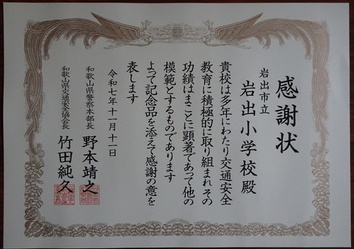 感謝状
岩出市立
岩出小学校殿
貴校は多年にわたり交通安全
教育に積極的に取り組まれその
功績はまことに顕著であって他の
模範とするものであります
よって記念品を添えて感謝の意を
表します
令和七年十一月十一日
和歌山県警察本部長
野本靖之
和歌山県交通安全協会会長
竹田純久